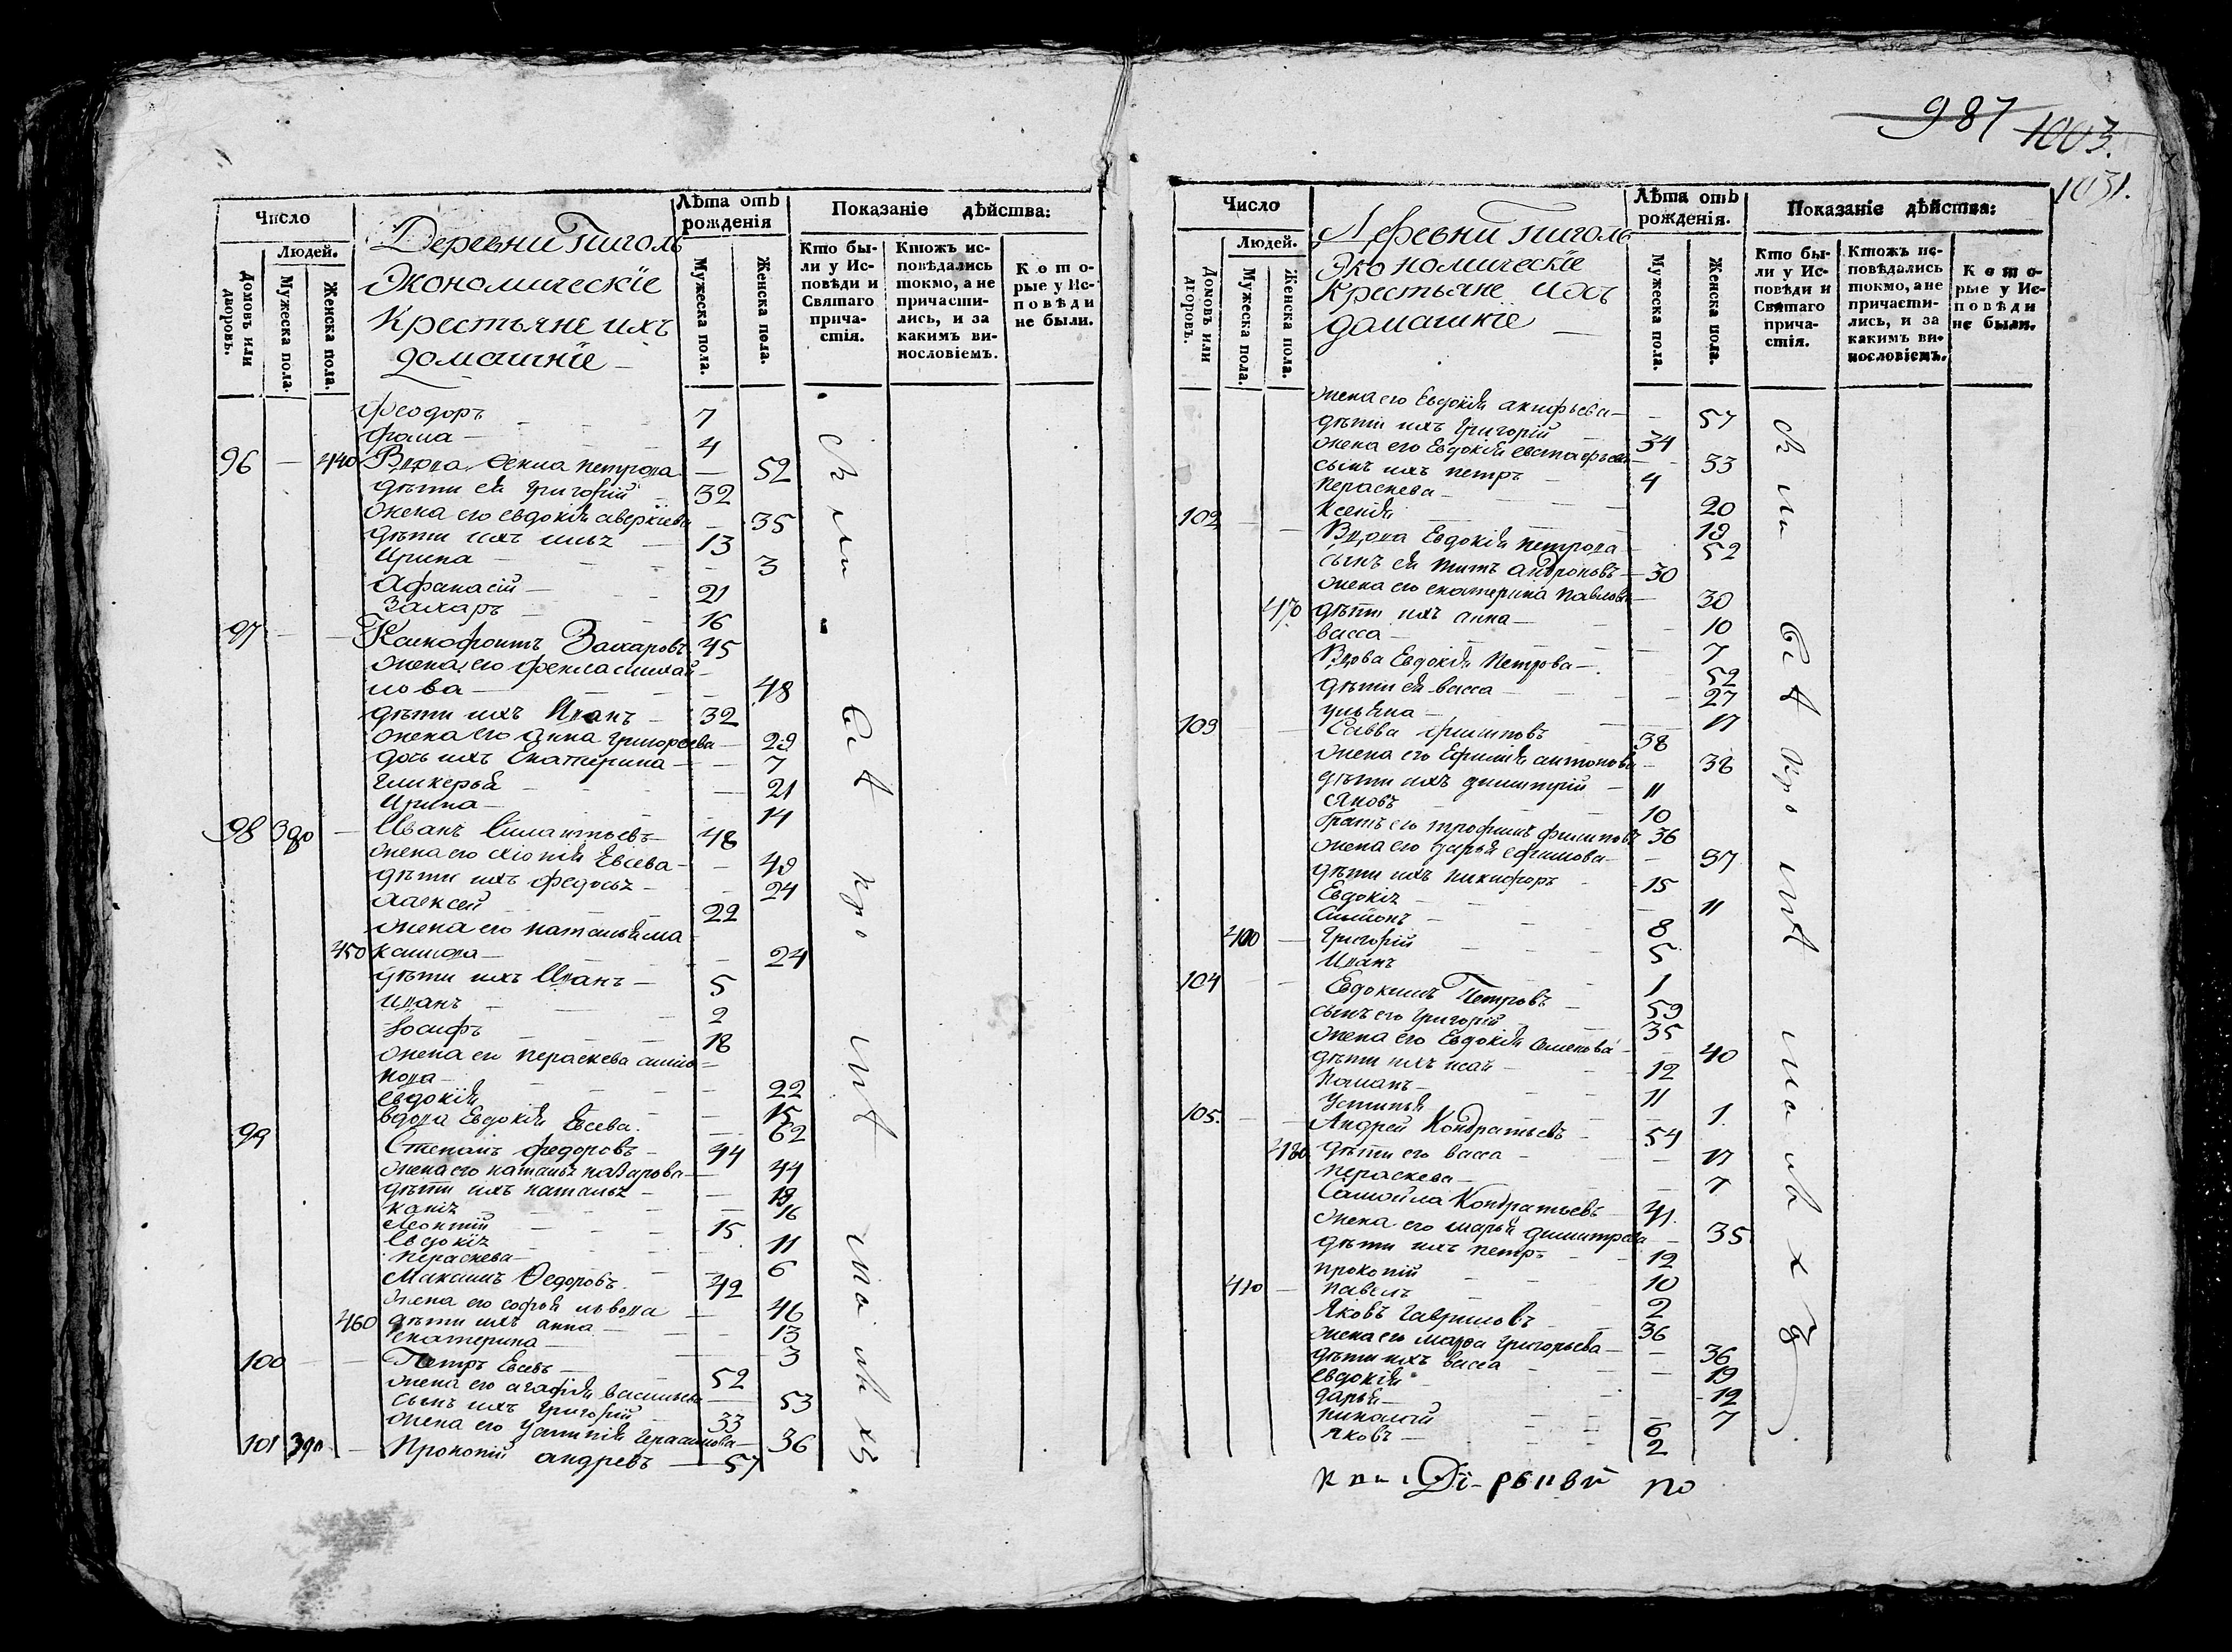 987 1003.
1031.
Число
Людей.
Домовъ или дворовъ.
Мужеска пола.
Женска пола.
Деревни Пиголь
Экономическіе
Крестьяне ихъ
домашніе
Лѣта отъ рожденія
Мужеска пола.
Женска пола.
Показаніе дѣйства:
Кто бы-
ли у Ис-
повѣди и
Святаго
прича-
стія.
Ктожъ ис-
повѣдались
токмо, а не
причасти-
лись, и за
какимъ ви-
нословіемъ.
Кото-
рые у Ис-
повѣди
не были.
Феодоръ 7
Фома 4
96 — 440 Вдова Фекла Петрова — 52
дѣти ея Григорій 32
жена его Евдокія Аверкіева — 35
дѣти ихъ 13
Ирина — 3
Афанасій — 21
Захаръ 16
97 — — Ксенофонтъ Захаровъ 45
жена его Фекла Михай
лова — 48
дѣти ихъ Иванъ — 32
жена его Анна Григорьева — 29
дочь ихъ Екатерина — 7
Гликерья — 21
Ирина — 14
98 390 — Иванъ 48
жена его Хіонія Евсева — 49
дѣти ихъ Федосья — 24
Алексей 22
жена его Наталья Ма
450 — 24
дѣти ихъ Иванъ — 5
Иванъ — 2
Іосифъ 18
жена его Пераскева
нова — 22
Евдокія — 15
вдова Евдокія Евсева. — 62
99 Степанъ Федоровъ — 44
жена его Наталья Назарова — 44
дѣти ихъ Наталья — 19
16
Леонтій 15
Евдокія 11
Пераскева — 6
Максимъ Федоровъ 42
жена его Софья Львова — 46
460 дѣти ихъ Анна — 13
Екатерина — 3
100 — — Петръ Евсевъ — 52
жена его Агафія Васильева — 53
сынъ ихъ Григорій 33
жена его Устинія Герасимова — 36
101 390 — Прокопій Андревъ — 57
Число
Людей.
Домовъ или дворовъ.
Мужеска пола.
Женска пола.
Деревни Пиголь
Экономическіе
Крестьяне ихъ
домашніе —
Лѣта отъ рожденія.
Мужеска пола.
Женска пола.
Показаніе дѣйства:
Кто бы-
ли у Ис-
повѣди и
Святаго
прича-
стія.
Ктожъ ис-
повѣдались
токмо, а не
причасти-
лись, и за
какимъ ви-
нословіемъ.
Кото-
рые у Ис-
повѣди
не были.
жена его Евдокія — 57
дѣти ихъ Григорій 34
жена его Евдокія — 33
сынъ ихъ Петръ 4
Пераскева — 20
Ксенія 19
102 — — Вдова Евдокія Петрова — 52
сынъ ея Титъ Андроновъ — 30
жена его Екатерина Павлова — 30
470 дѣти ихъ Анна — 10
Васса — 7
Вдова Евдокія Петрова — 52
дѣти ея Васса 27
Ульяна — 17
103 — — Савва Филиповъ 38
жена его Ефимія Антонова — 38
дѣти ихъ Димитрій 11
Яковъ 10
братъ его Трофимъ Филиповъ 36
жена его Дарья Ефимова — 37
дѣти ихъ Никифоръ 15
Евдокія 11
Симіонъ 8
400 — Григорій 5
Иванъ 1
104 — — Евдокимъ Петровъ 59
сынъ его Григорій 35
жена его Евдокія Семенова — 40
дѣти ихъ Исай — 12
11
Устинья 1.
105. — — Андрей Кондратьевъ 54
480 дѣти его Васса — 17
Пераскева — 7
Самойла Кондратьевъ 41
жена его Марья Димитрева — 35
дѣти ихъ Петръ 12
Прокопій 10
410 — Павелъ 2
Яковъ Гавриловъ 36
жена его Марфа Григорьева — 36
дѣти ихъ Васса 19
Евдокія 12
Дарья — 7
Николай 6
Яковъ — 2